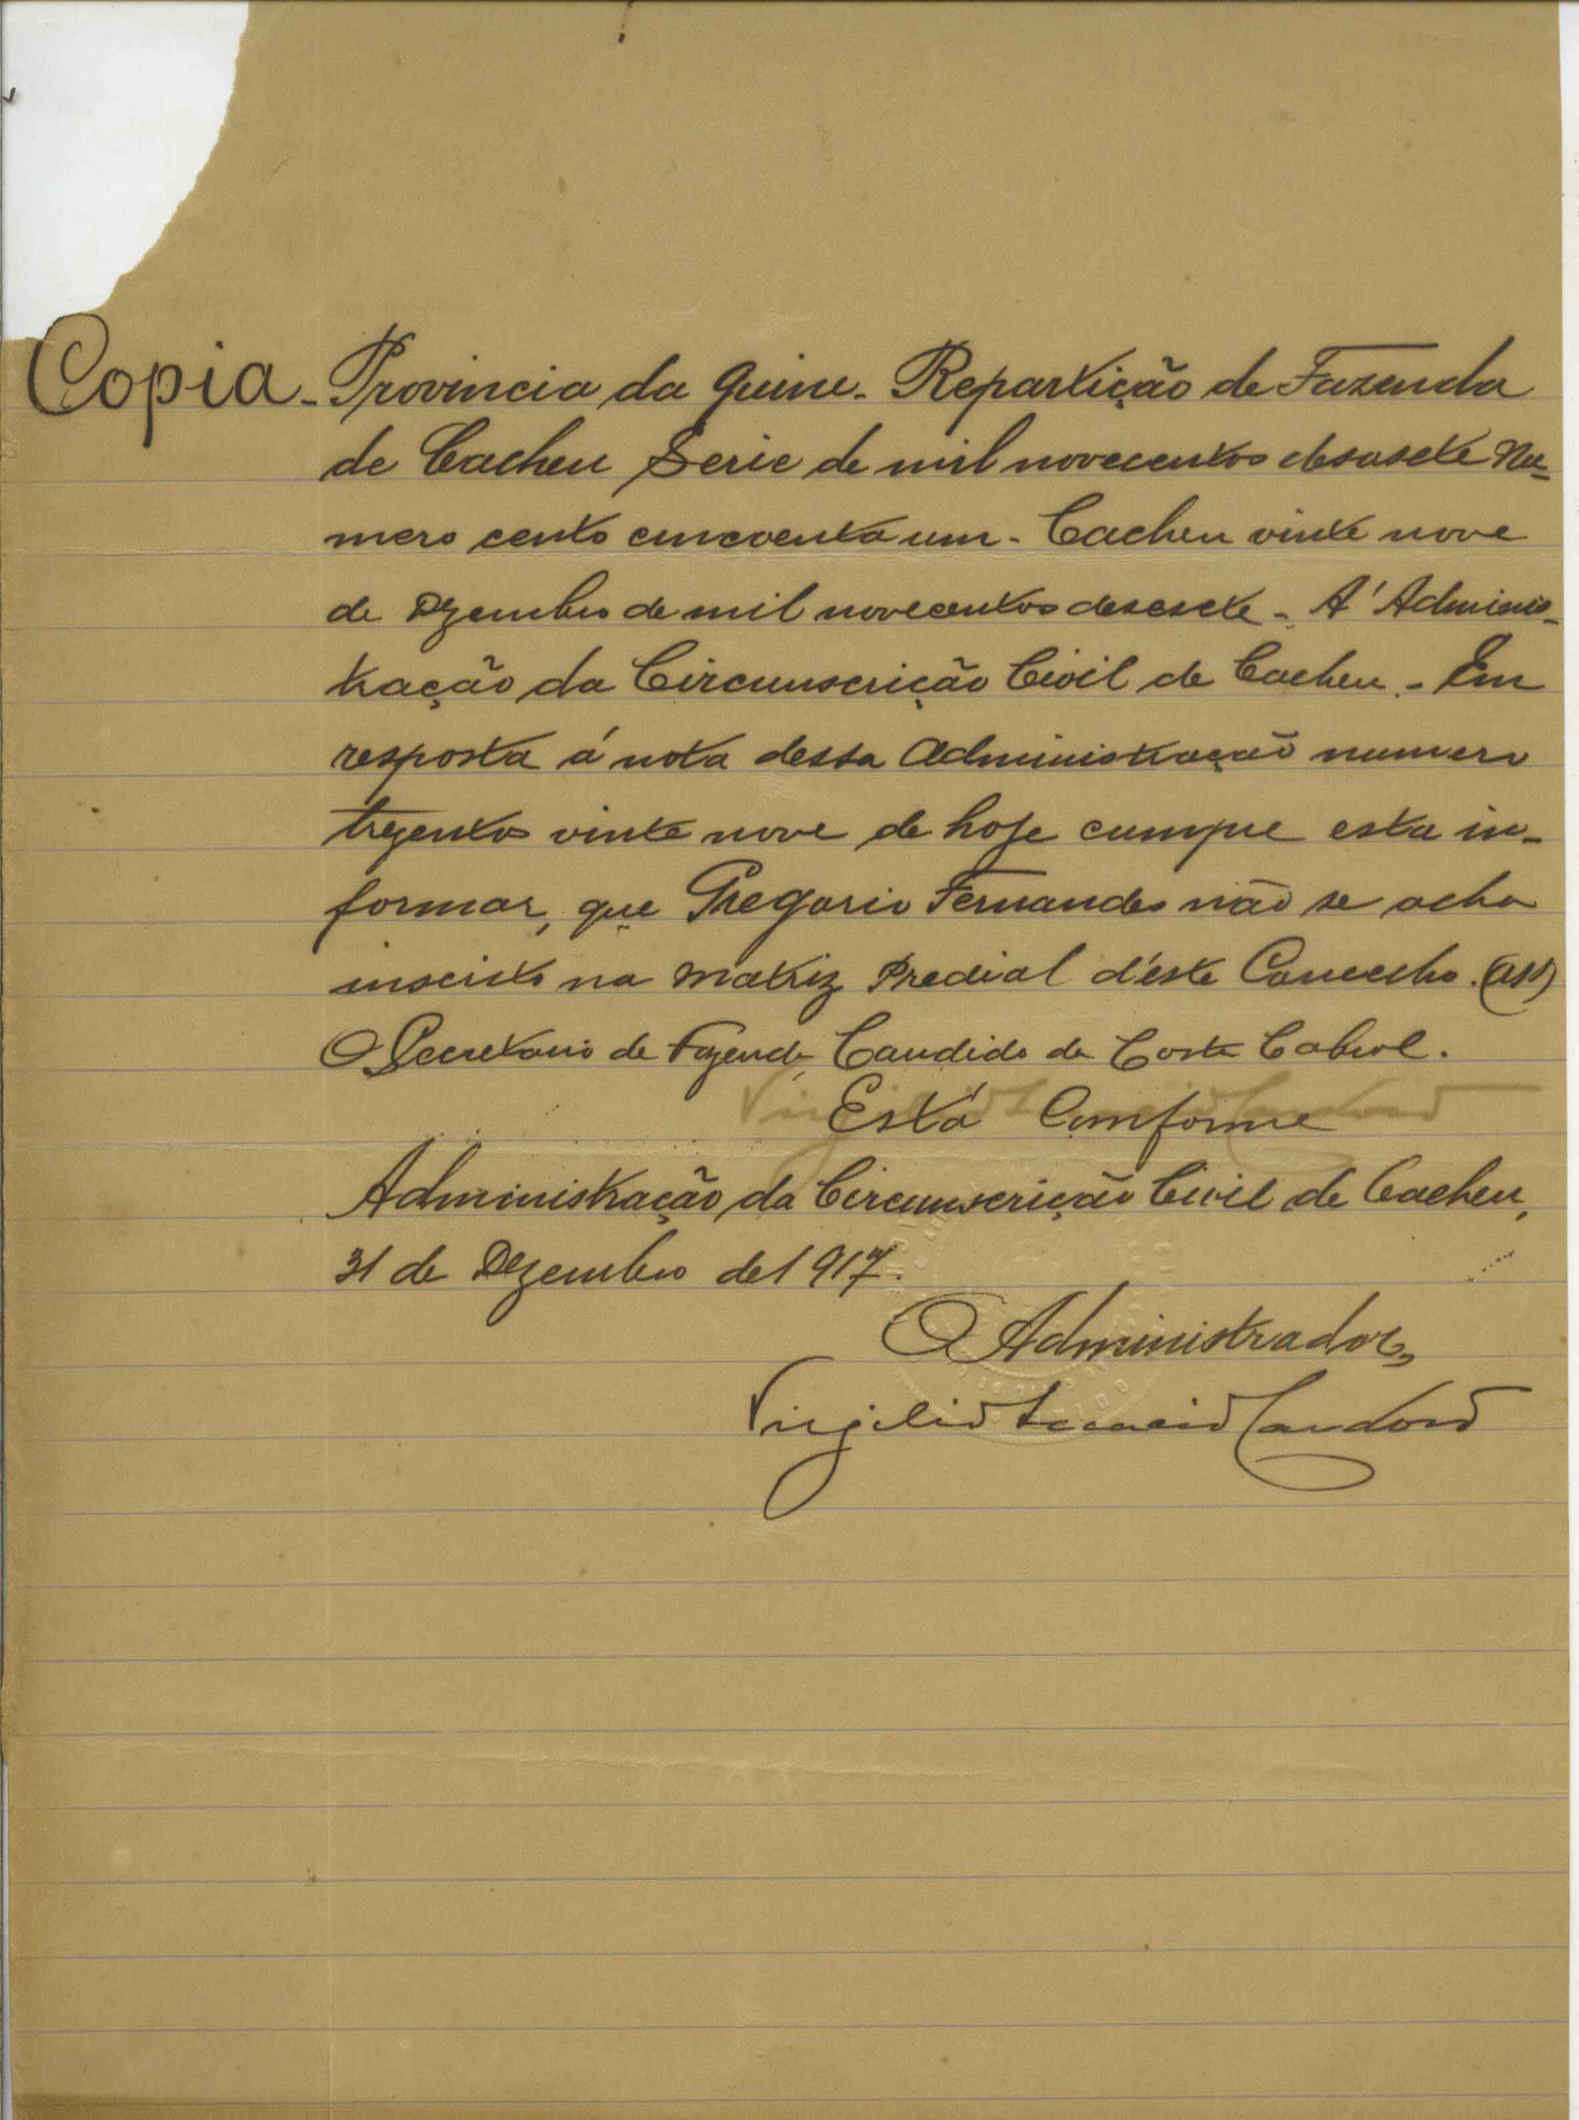 Copia - Provincia da Guine - Repartição de Fazenda
de Cacheu Serie de mil novecentos desasete Nu-
mero cento cincoenta um - Cacheu vinte nove
de Dezembro de mil novecentos desesete - A' Adminis-
tração da Circunscrição Civil de Cacheu - Em
resposta á nota dessa Administração numero
trezentos vinte nove de hoje cumpre esta in-
formar, que Gregorio Fernandes não se acha
inscrito na Matriz Predial d'este Concelho. (ass)
O Secretario de Fazenda, Candido da Costa Cabral.
Está Comforme
Administração da Circunscrição Civil de Cacheu,
31 de Dezembro de 1917.
O Administrador,
Virgilio